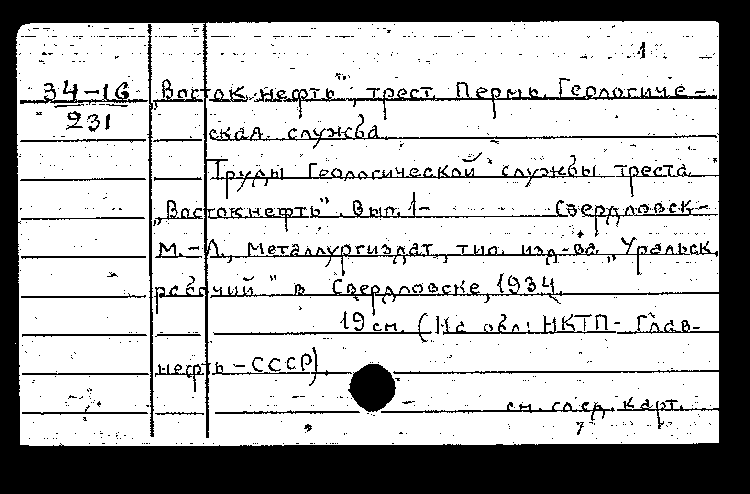 1
34-16
231
„Востокнефть", трест. Пермь. Геологиче-
ская служба.
Труды Геологической службы треста
„Востокнефть". Вып. 1- Свердловск-
М.-Л., Металлургиздат, тип. изд-ва „Уральск.
рабочий" в Свердловске, 1934.
19 см. (На обл: НКТП- Глав-
нефть-СССР).
см. след. карт.